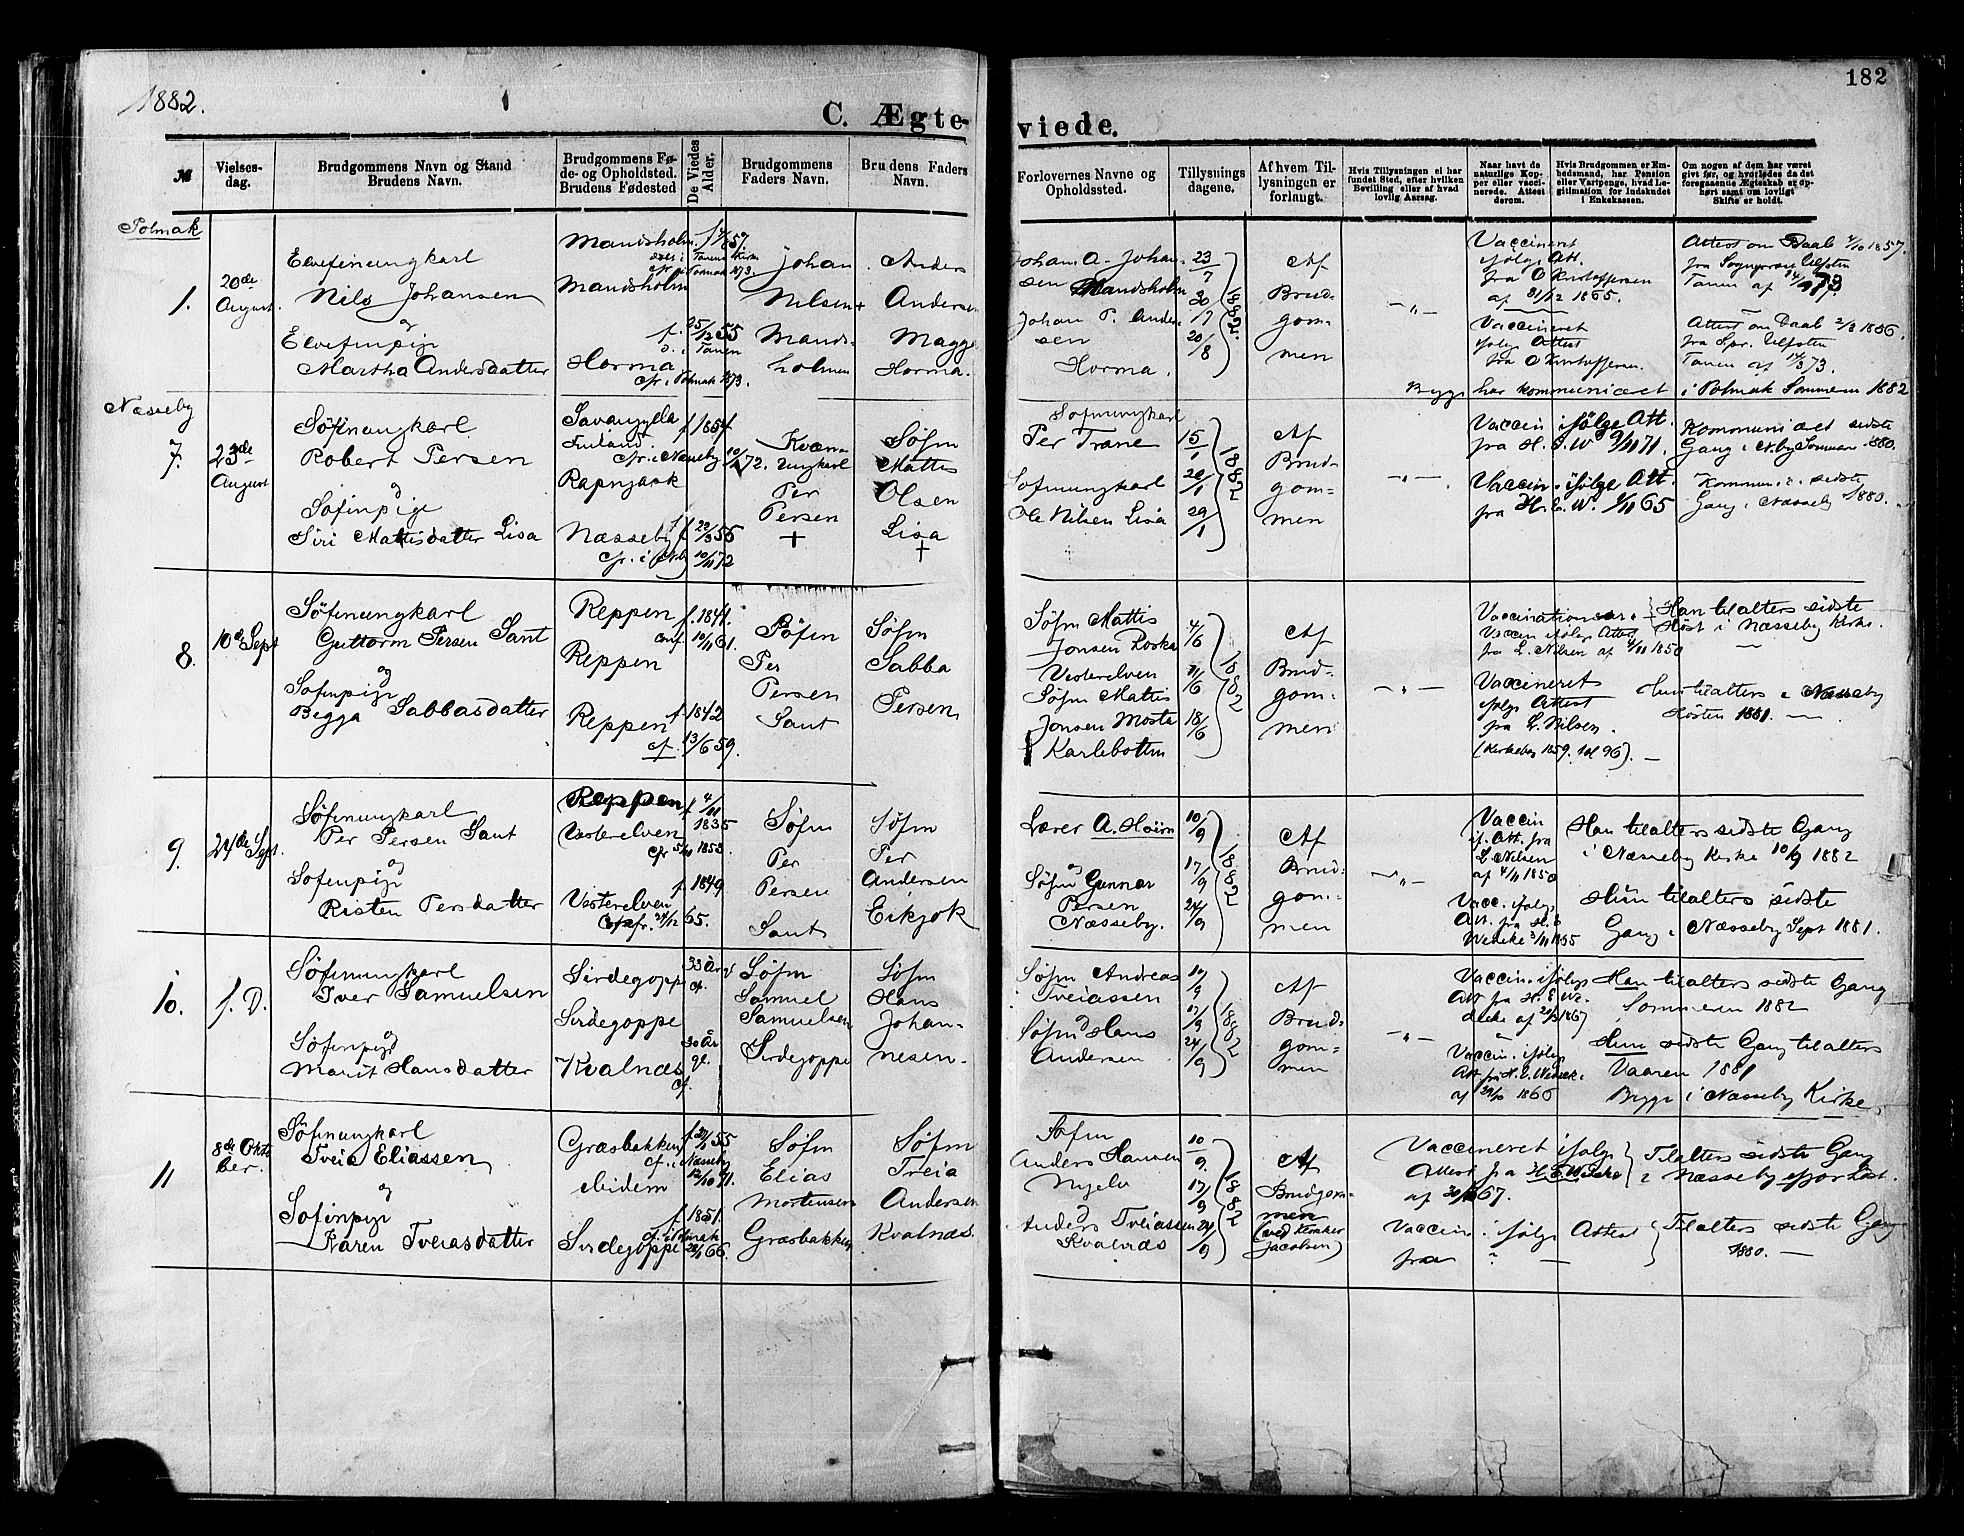 1882.
182
C. Ægteviede.
№
Vielses-
dag.
Brudgommens Navn og Stand
Brudens Navn.
Brudgommens Fø-
de- og Opholdsted.
Brudens Fødested
De Viedes
Alder.
Brudgommens
Faders Navn.
Brudens Faders
Navn.
Forlovernes Navne og
Opholdssted.
Tillysnings
dagene.
Af hvem Til-
lysningen er
forlangt.
Hvis Tillysningen ei har
fundet Sted, efter hvilken
Bevilling eller af hvad
lovlig Aarsag.
Naar havt de
naturlige Kop-
per eller vacci-
nerede. Attest
derom.
Hvis Brudgommen er Em-
bedsmand, har Pension
eller Vartpenge, hvad Le-
gitimation for Indskudet
i Enkekassen.
Om nogen af dem har været
givt før, og hvorledes da det
foregaaende Ægteskab er op-
hørt samt om lovligt
Skifte er holdt.
Polmak
1.
20de
August.
Elvefinungkarl
Nils Johansen
og
Elvefinpige
Martha Andersdatter
Mandsholm
Mandsholm
Horma
Johan
Nilsen
Mands-
holmen
Anders
Andersen
Magga
Horma.
Johan A. Johan-
sen Mandsholm
Johan P. Ander-
sen
Horma.
23/7
30/7
20/8
1882.
Af
Brud-
gom-
men
- " -
Vaccineret
ifølge Att.
fra O Kristoffersen
af 31/12 1865.
Vaccineret
ifølge Attest
fra O Kristoffersen.
Attest om Daab 4/10 1857.
Attest om Daab 2/3 1856.
Tanen af 14/3 73.
Begge har kommuniceret i Polmak Sommeren 1882
Næsseby
7.
23de
August
Søfinungkarl
Robert Persen
og
Søfinpige
Siri Mattisdatter Lisa
Finland.
Næsseby
f. 1854
Kvæn-
ungkarl
Per
Persen
+
Søfin
Mattis
Olsen
Lisa
+
Søfinungkarl
Per Trane
Søfinungkarl
Ole Nilsen Lisa
15/1
22/1
29/1
1882
Af
Brud-
gom-
men
- " -
Vaccin. ifølge Att.
Vaccin. ifølge Att.
fra H. E. W. 1/11 65
Kommuniceret sidste
Gang i N.by Sommeren 1880.
Kommun. c. sidste
Gang i Næsseby 1880.
8.
10de Sept
Søfinungkarl
Guttorm Persen Sant
og
Søfinpige
Begga Sabbasdatter
Reppen
Reppen
Reppen
f. 1844.
conf. 10/11 61.
f. 1842
cf. 13/6 59.
Søfin
Per
Persen
Sant
Søfin
Sabba
Persen
Søfin Mattis
Jonsen Roska
Vesterelven
Søfin Mattis
Jonsen Moste
Karlebotten
4/6
11/6
18/6
1882
Af
Brud-
gom-
men
- " -
Vaccin ifølge Attest
fra L. Nilsen af 4/11 1850
Vaccineret
ifølge Attest
fra L. Nilsen.
Han tilalters sidste
Høst i Næsseby Kirke.
Hun tilalters i Næsseby
Høsten 1881.
9.
24de Sept.
Søfinungkarl
Per Persen Sant
og
Søfinpige
Risten Persdatter
Reppen
Vesterelven
Vesterelven
f. 4/11
1835
f. 1849
Søfin
Per
Persen
Sant
Søfin
Per
Andersen
Erkjok
Lærer A. Hoëm
og
Søfin Gunnar
Persen
Næsseby.
10/9
17/9
24/9
1882
Af
Brud-
gom-
men
- " -
Vaccin
if. Att. fra
L. Nilsen
af 4/11 1850
Vacc. ifølge
Att. fra H. E
Wedeke 2/11 1855
Han tilalters sidste Gang
i Næsseby Kirke 10/9 1882
Hun tilalters sidste
Gang i Næsseby Sept 1881.
10.
s. D.
Søfinungkarl
Iver Samuelsen
og
Søfinpige
Marit Hansdatter
Sirdegoppe
Sirdegoppe
Kvalnæs
33 År
cf.
30 År
gl.
cf.
Søfin
Samuel
Samuelsen
Sirdegoppe
Søfin
Hans
Johan-
nesen.
Søfin Andreas
Tveiassen
og
Søfin Hans
Andersen
10/9
17/9
24/9
1882
Af
Brud-
gom-
men
- " -
Vaccin. ifølge
Att. fra H. E. We-
deke
Vaccin. ifølge
1866
Han tilalters sidste Gang
Sommeren 1882
Hun sidste Gang tilalters
Vaaren 1881
Begge i Næsseby Kirke.
11
8de Okto
ber.
Søfinungkarl
Tveia Eliassen
og
Søfinpige
Karen Tveiasdatter
Græsbakken
ibidem
Sirdegoppe
f. 1851.
Søfin
Elias
Mortensen
Græsbakken
Søfin
Treia
Andersen
Kvalnæs.
Søfin
Anders Hansen
Nyelv
og
Anders Tveiassen
Kvalnæs
10/9
17/9
24/9
1882
Af
Brudgom-
men
(ved Kirker
Jacobsen)
Vaccineret ifølge
Attest fra H. E. Wedeke
Vaccin. ifølge Attest
fra ?
Tilalters sidste Gang
i Næsseby
Tilalters sidste Gang
1880.